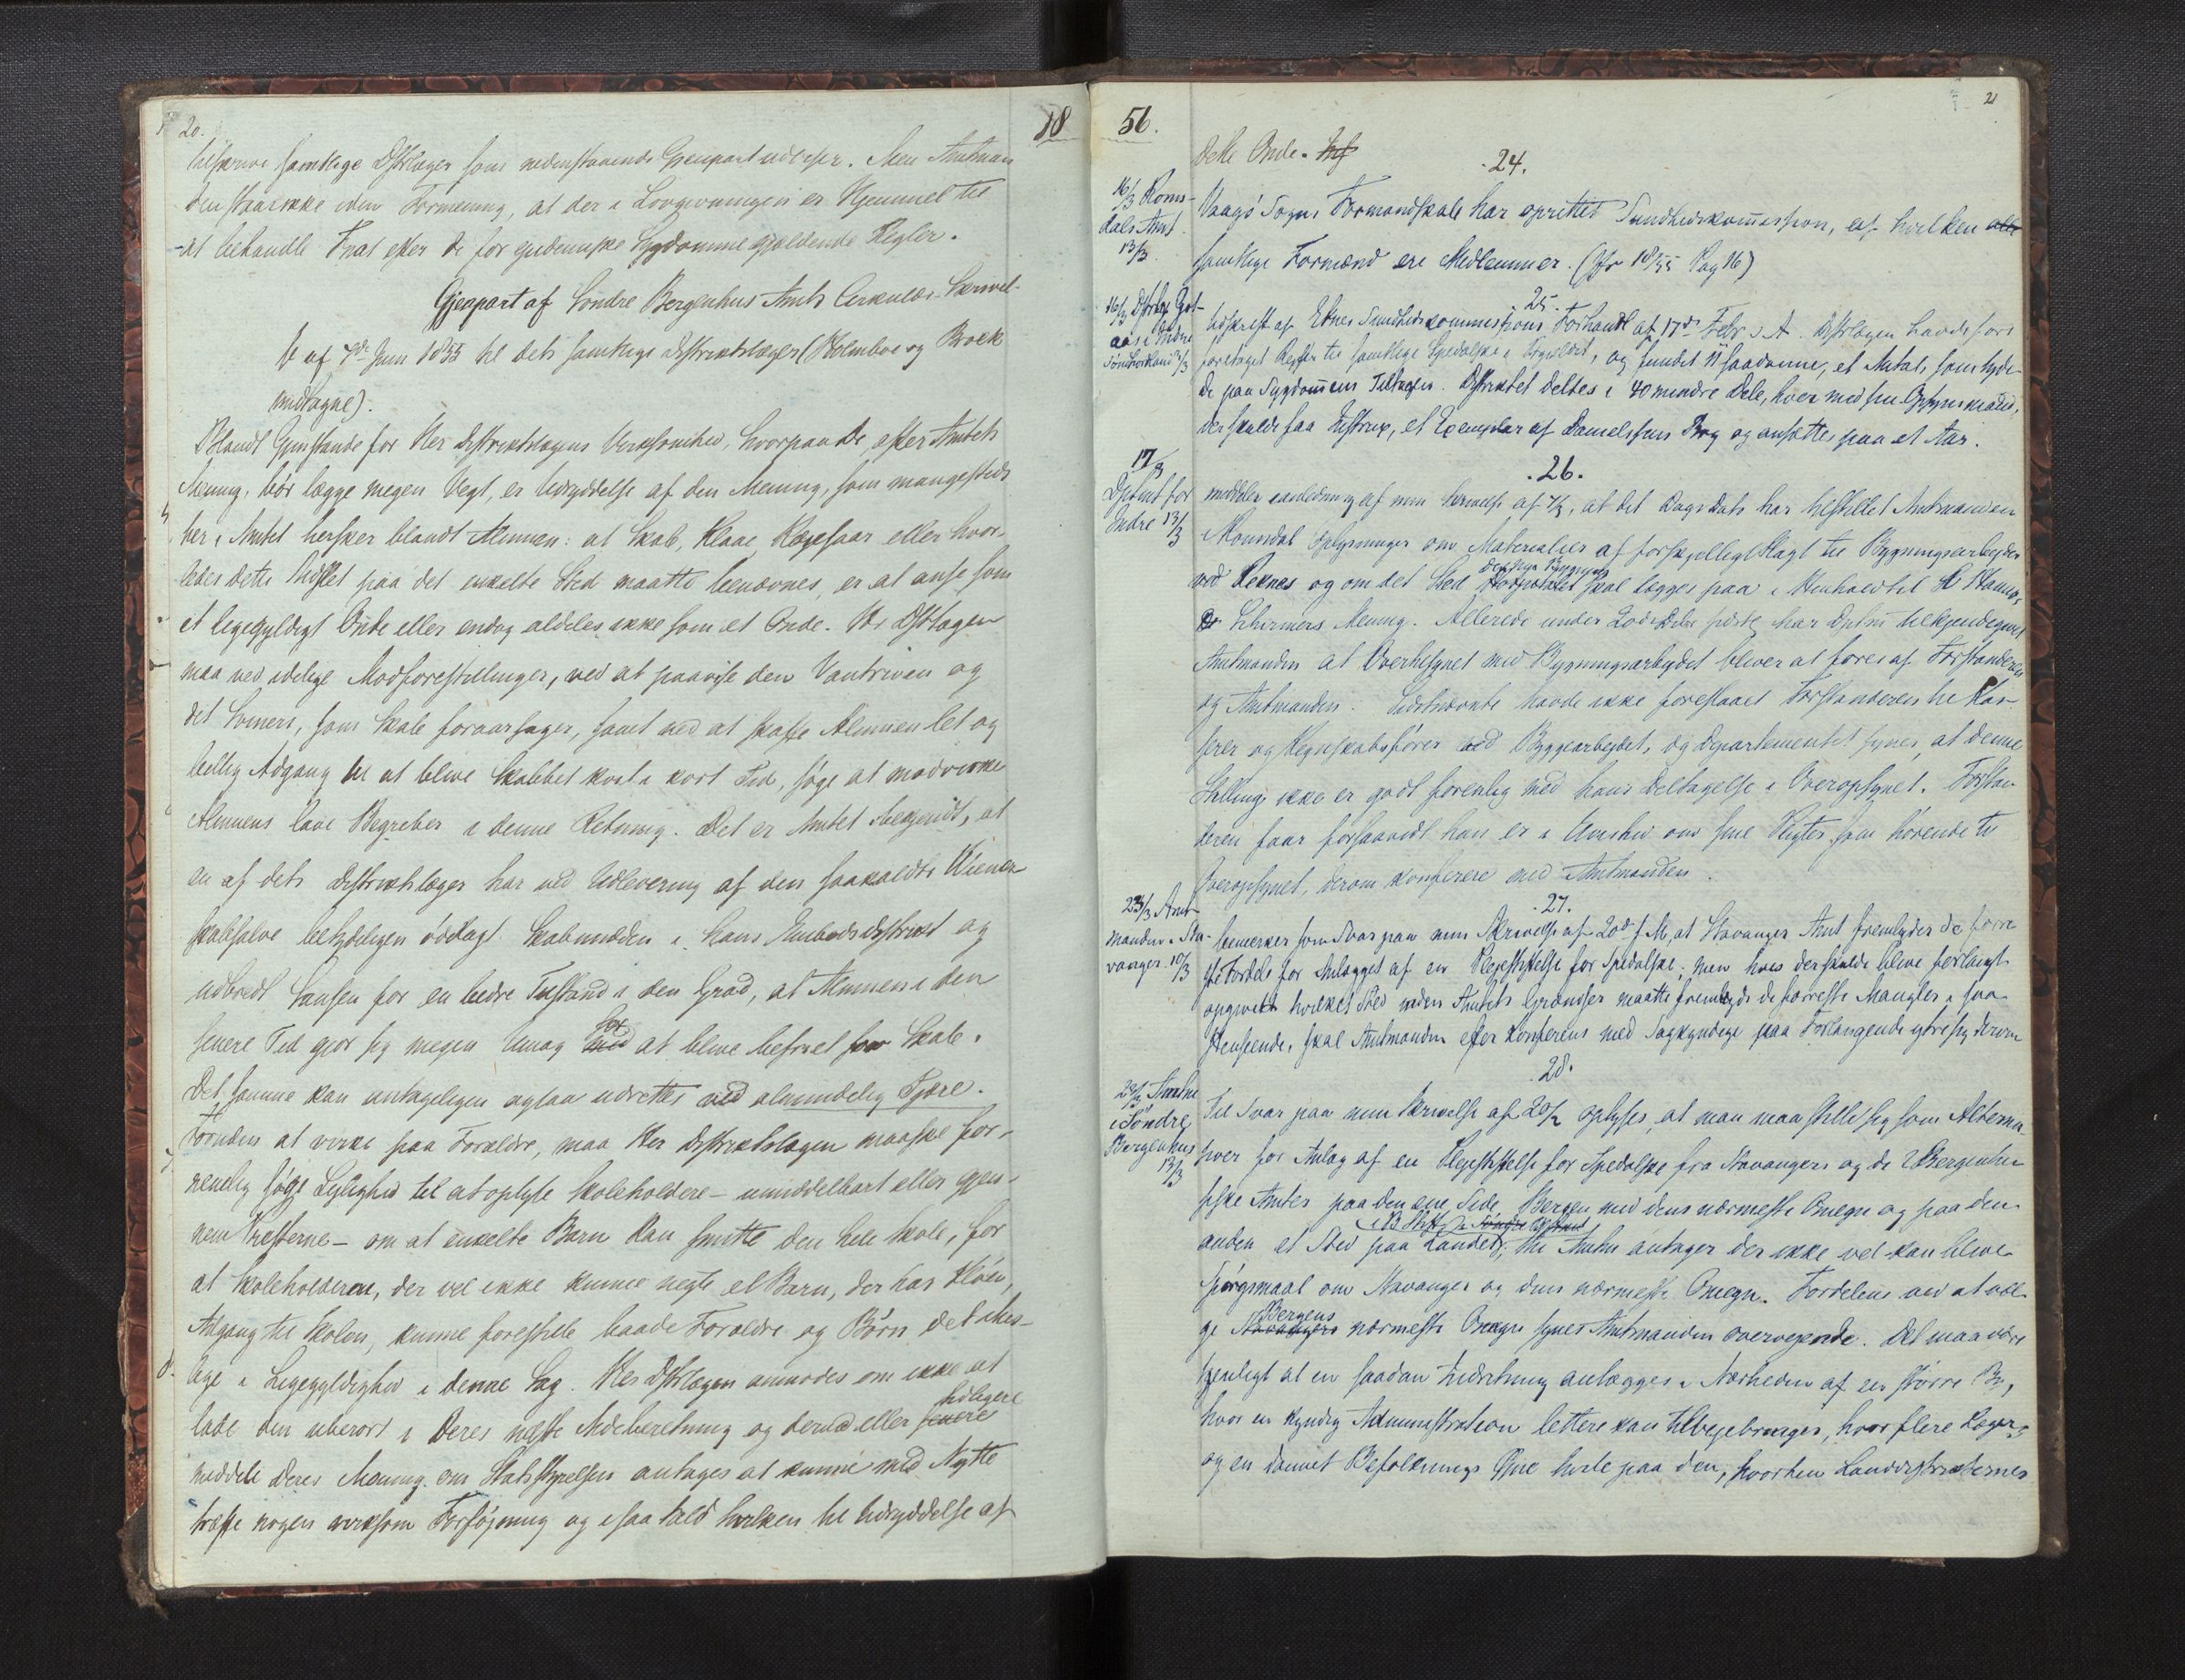 20.
18
tilskrive samtlige Dstrlæger som nedenstaaende Gjenpart udviser. Men Amtman
den staar ikke i den Formening, at der i Lovgivningen er Hjemmel til
at behandle Fnat efter de for epidemiske Sygdomme gjældende Regler.
Gjenpart af Søndre Bergenhus Amts Cirkulær-Skrivel-
se af 7de Juni 1855 til dets samtlige Distriktslæger (Holmboe og Krock
undtagne).
Blandt Gjenstande for Hr Distriktslægens Virksomhed, hvorpaa De, efter Amtets
Mening, bør lægge megen Vegt, er Udryddelse af den Mening, som mangesteds
her i Amtet hersker blandt Almuen: at Skab, Klaae, Rægesaar eller hvor-
ledes dette Udslet paa det enkelte Sted maatte benævnes, er at anse som
et ligegyldigt Onde eller endog aldeles ikke som et Onde. Hr Dstlægen
maa ved idelige Modforestillinger, ved at paavise den Vantriven og
det Svineri, som Skabb foraarsager, samt ved at skaffe Almuen let og
billig Adgang til at blive Skabbet kvit i kort Tid, søge at modvirke
Almuens lave Begreber i denne Retning. Det er Amtet bekjendt, at
en af dets Distriktslæger har ved Udlevering af den saakaldte Wiener-
skabsalve betydeligen ødelagt Skabmidden i hans Embedsdistrikt og
udbredt Sansen for en bedre Tilstand i den Grad, at Almuen i den
senere Tid gjør sig megen Umag for at blive befriet for Skab.
Det samme kan antageligen ogsaa udrettes ved almindelig Tjære.
Foruden at virke paa Forældre, maa Her Distriktslægen maaske for-
nemlig søge Leilighed til at oplyse Skoleholdere - umiddelbart eller gjen-
nem Præsterne - om at enkelte Barn kan smitte den hele Skole, for
at Skoleholderen, der vel ikke kunne negte et Barn, der har Kløe,
Adgang til Skolen, kunne forestille baade Forældre og Børn det uhel-
lige i Ligegyldighed i denne Sag. Her Dstrlægen anmodes om ikke at
lade den uberørt i Deres næste Aarberetning og derved eller tidligere senere
meddele Deres Mening om Statsstyrelsen antages at kunne med Nytte
træffe nogen virksom Forføjning og i saa Fald hvilken til Udryddelse af
56.
21
dette Onde.
24.
16/3 Roms-
dals Amt
13/3
Vaagø Sogns Formandskab har oprettet Sundhedskommission, af hvilken alle
samtlige Formænd ere Medlemmer. (Jfr 18/55 Pag 16)
25.
16/3 Dstrlæge
aas i Indre
Søndhordland
Udskrift af Etnes Sundhedskommissions Forhandl af 17de Febr d. A. Dstrlægen havde fore
foretaget Rejser til samtlige Spedalske i Præstegjeldet, og fundet 11 saadanne, et Antal, som tyde
de paa Sygdommens Tiltagen. Distriktet deltes i 40 mindre Dele, hver med sin Opsynsmand,
der skulde faa Instrux, et Exemplar af Danielsens Bog og ansættes paa et Aar.
26.
17/3
Dptmt for
Indre 13/3
meddeler i anledning af min Skrivelse af 7/3, at det Dags Dato har tilstillet Amtmanden
i Romsdal Oplysninger om Materialier af forskjelligt Slagt til Bygningsarbejder
ved Reknes og om det Sted den nye Bygning skal lægges paa i Henhold til Hr
Schirmers Mening. Allerede under 20de Dcbr sidste har Dptmt tilkjendegivet
Amtmanden at Overtilsynet med Bygningsarbejdet bliver at føres af Forstanderen
og Amtmanden. Sidstnævnte havde ikke foreslaaet Forstanderen til Kas-
serer og Regnskabsfører ved Byggearbejdet, og Departementet synes, at denne
Stilling ikke er godt forenlig med hans Deltagelse i Overopsynet. Forstan-
deren faar forsaavidt han er i Uvished om sine Pligter som hørende til
Overopsynet, derom konferere med Amtmanden.
27.
23/3 Amt-
manden i Sta-
vanger. 10/3
bemærker som Svar paa min Skrivelse af 20de f M, at Stavanger Amt frembyder de fleste
Fordele for Anlægget af en Plejestiftelse for Spedalske; men hvis der skulde blive forlangt
opgivet hvilket Sted inden Amtets Grændser maatte frembyde de færreste Mangler i saa
Henseende, skal Amtmanden efter Konferens med Sagkyndige paa Forlangende ytre sig derom
28.
23/3 Amtm
i Søndre
Bergenhus
13/3
Til Svar paa min Skrivelse af 20/2 oplyses, at man maa stille sig som Alterna-
tiver for Anlæg af en Plejestiftelse for Spedalske fra Stavangers og de 2 Bergenhu
siske Amter paa den ene Side Bergen med dens nærmeste Omegn og paa den
anden et Sted paa Landet; thi Amtm antager der ikke vel kan blive
Spørgsmaal om Stavanger og dens nærmeste Omegn. Fordelene ved at væl-
ge Bergens Stavangers nærmeste Omegn synes Amtmanden overvejende. Det maa være
gavnligt at en saadan Indretning anlægges i Nærheden af en større By,
hvor en kyndig Administration lettere kan tilvejebringes, hvor flere Læger
og en dannet Befolknings Øine hvile paa den, hvorhen Landdistrikternes